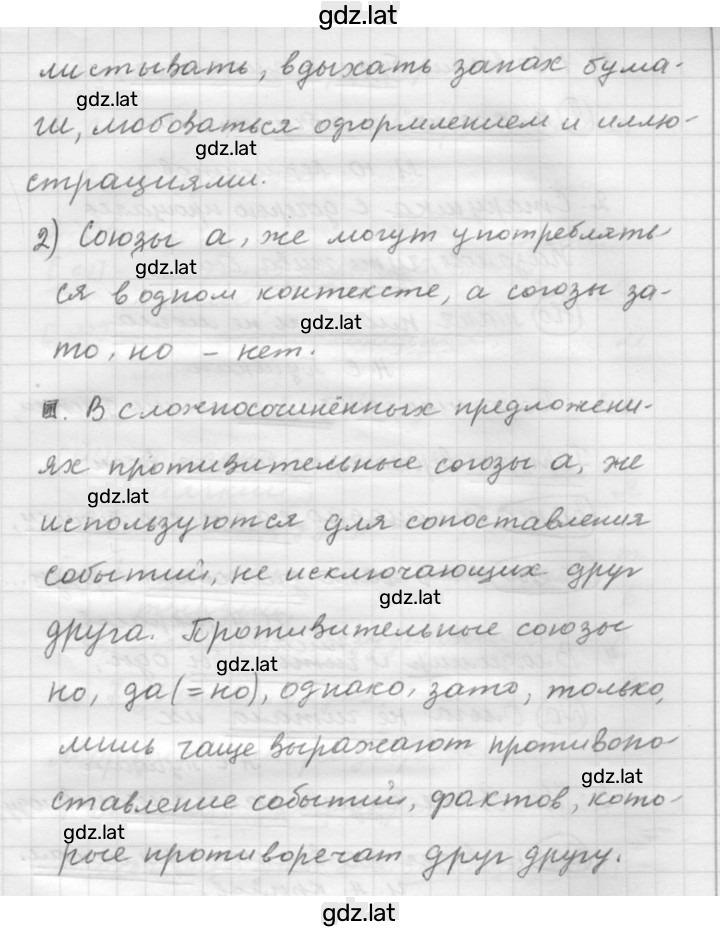 gdz.lat
листывать, вдыхать запах бума-
gdz.lat
ги, любоваться оформлением и иллю-
gdz.lat
страциями.
2) Союзы а, же могут употреблять-
gdz.lat
ся в одном контексте, а союзы за-
gdz.lat
то, но – нет.
III. В сложносочинённых предложени-
ях противительные союзы а, же
gdz.lat
используются для сопоставления
событий, не исключающих друг
gdz.lat
друга. Противительные союзы
gdz.lat
но, да (=но), однако, зато, только,
лишь чаще выражают противопо-
gdz.lat
ставление событий, фактов, кото-
gdz.lat
рые противоречат друг другу.
gdz.lat